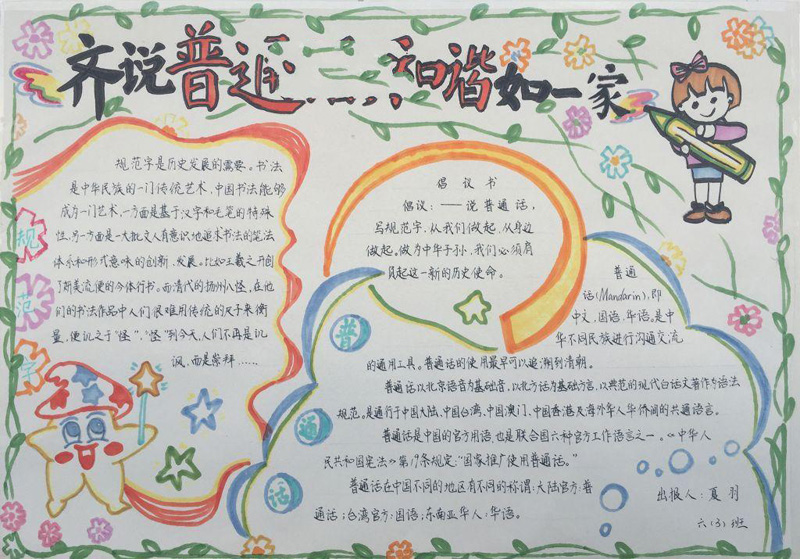 齐说普通 谐如一家
规范字是历史发展的需要。书法
是中华民族的一门传统艺术,中国书法能够
成为一门艺术,一方面是基于汉字和毛笔的特殊
性,另一方面是一大批文人有意识地追求书法的笔法
体系和形式意味的创新、发展。比如王羲之开创
了新美流便的今体行书。而清代的扬州八怪,在他
们的书法作品中人们很难用传统的尺子来衡
量,便讥之于“怪”,“怪”到今天,人们不再是讥
讽,而是崇拜……
规
范
字
倡议书
倡议:——说普通话,
写规范字,从我们做起,从身边
做起。做为中华子孙,我们必须肩
负起这一新的历史使命。
普
通
话
普通
话(Mandarin),即
中文,国语,华语,是中
华不同民族进行沟通交流
的通用工具。普通话的使用最早可以追溯到清朝。
普通话以北京语音为基础音,以北方话为基础方言,以典范的现代白话文著作为语法
规范,是通行于中国大陆,中国台湾,中国澳门,中国香港及海外华人华侨间的共通语言。
普通话是中国的官方用语,也是联合国六种官方工作语言之一。《中华人
民共和国宪法》第19条规定:“国家推广使用普通话。”
普通话在中国不同的地区有不同的称谓:大陆官方:普
通话;台湾官方:国语;东南亚华人:华语。
出报人:夏羽
六(3)班